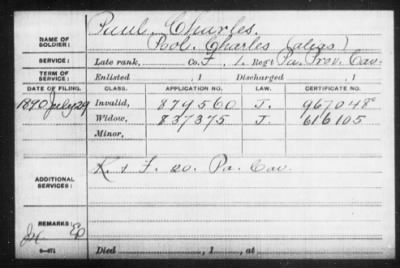 NAME OF SOLDIER: Paul, Charles.
Pool, Charles (alias)
SERVICE: Late rank, Co. F, 1 Regt Pa. Prov. Cav.
TERM OF SERVICE: Enlisted , 1 Discharged , 1
DATE OF FILING. CLASS. APPLICATION NO. LAW. CERTIFICATE NO.
1890 July 29 Invalid, 879560 J. 967048
Widow, 837375 J. 616105
Minor,
ADDITIONAL SERVICES: K & F 20. Pa. Cav.
REMARKS:
Died , 1 , at